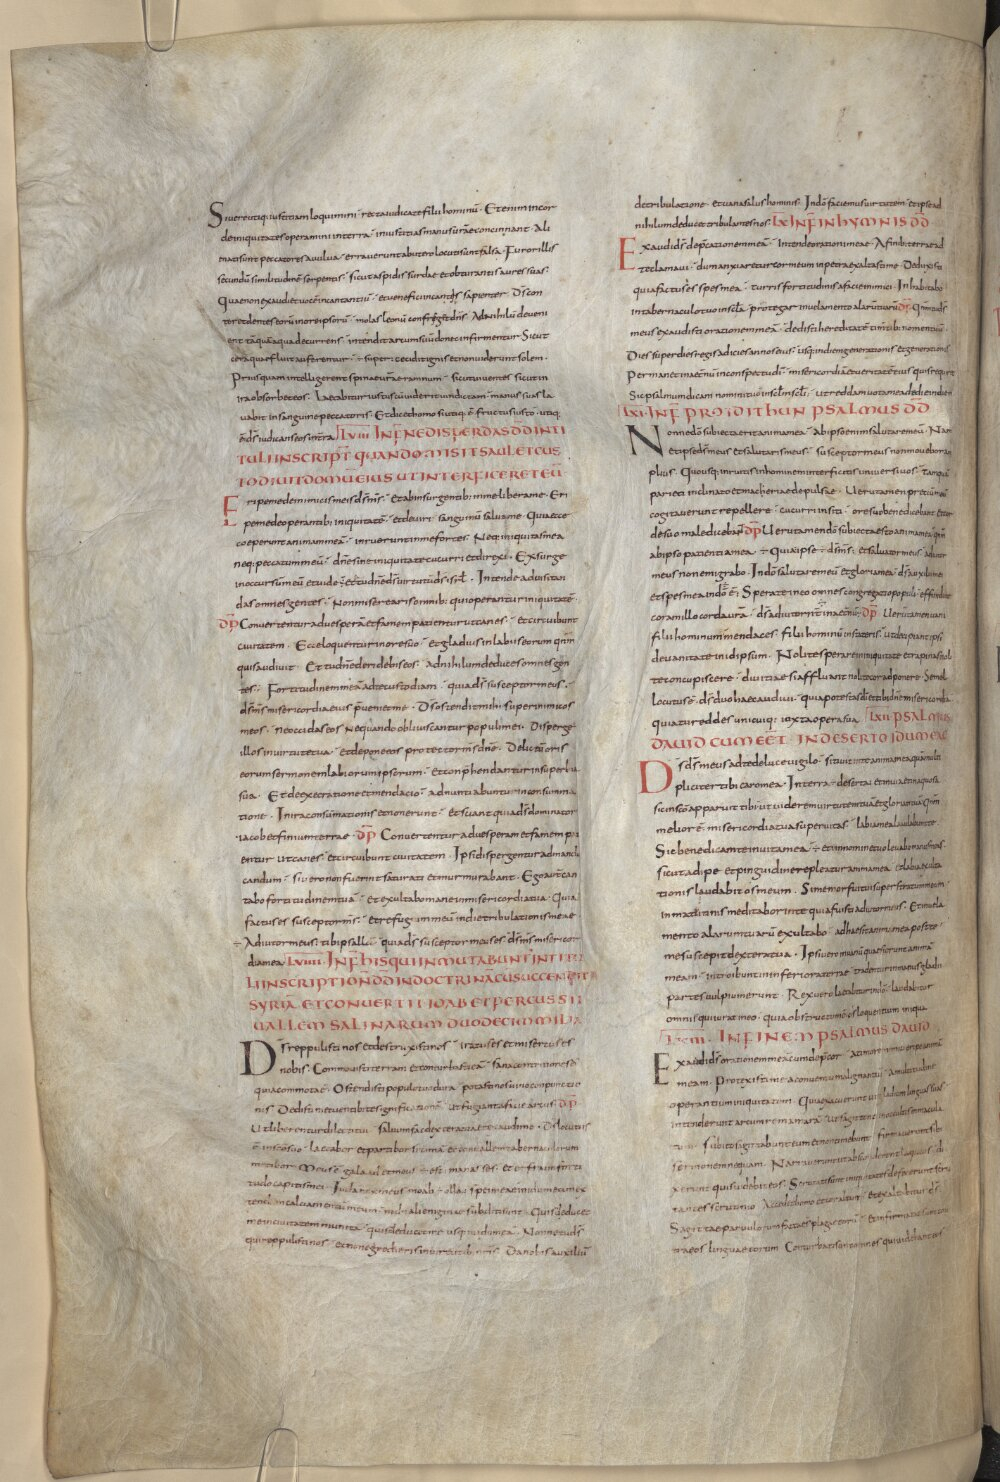 Si uere utiq; iustitiam loquimini · recta iudicate filii hominū · Etenim in cor
de iniquitates operamini in terra · iniustitias manus uestrae concinnant · Ali
enati sunt peccatores a uulua · errauerunt ab utero locuti sunt falsa · Furor illis
secundū similitudinē serpentis · sicut aspidis surdae et obturantis aures suas ·
Quae non exaudiet uocē incantantiū · et uenefici incantantis sapienter · Ds con
teret dentes eorū in ore ipsorū · molas leonū confringet dns · Ad nihilū deueni
ent tāquā aqua decurrens · intendit arcum suū donec infirmentur · Sicut
cera quae fluit auferentur · ÷ super: cecidit ignis et non uiderunt solem ·
Priusquam intellegerent spinae uestrae ramnum · sicut uiuentes sicut in
ira obsorbet eos · Laetabitur iustus cū uiderit uindictam · manus suas la
uabit in sanguine peccatoris · Et dicet homo si utiq; ē fructus iusto · utiq;
ē ds iudicans eos in terra · LVIII · INF̄ NE DISPERDAS DD̄ INTI
TULI INSCRIPT̄ QUANDO MISIT SAUL ET CUS
TODIUIT DOMŪ EIUS UT INTERFICERET EŪ
Eripe me de inimicis meis ds ms · et ab insurgentib; in me libera me · Eri
pe me de operantib; iniquitatē · et de uiri sanguinū salua me · Quia ecce
coeperunt animam meā · inruerunt in me fortes · Neq; iniquitas mea
neq; peccatum meū · dne sine iniquitate cucurri et direxi · Exsurge
in occursū meū et uide · et tu dne ds uirtutū ds isrl · Intende ad uisitan
das omnes gentes · Non miserearis omnib; qui operantur iniquitatē ·
DP̄ Conuertentur ad uesperā et famem patientur ut canes · et circuibunt
ciuitatem · Ecce loquentur in ore suo · et gladius in labiis eorum qnm
quis audiuit · Et tu dne deridebis eos · ad nihilum deduces omnes gen
tes · Fortitudinem meā ad te custodiam · quia ds susceptor meus ·
ds ms misericordia eius praeueniet me · Ds ostendit mihi super inimicos
meos · ne occidas eos · Ne quando obliuiscantur populi mei · Disperge
illos in uirtute tua · et depone eos protector ms dne · Delictū oris
eorum sermonem labiorum ipsorum · et conprehendantur in superbia
sua · Et de execratione et mendacio · adnuntiabuntur in consumma
tione · In ira consumationis et non erunt · et scient quia ds dominator
iacob et finium terrae · DP̄ Conuertentur ad uesperam et famem pati
entur ut canes · et circuibunt ciuitatem · Ipsi dispergentur ad mandu
candum · si uero non fuerint saturati et murmurabunt · Ego aut can
tabo fortitudinem tuā · et exultabo mane misericordia tua · Quia
factus es susceptor ms · et refugium meū in die tribulationis meae
÷ Adiutor meus: tibi psallā · quia ds susceptor meus es · ds ms misericor
dia mea · LVIIII · INF̄ HIS QUI INMUTABUNT̄ IN TITU
LI INSCRIPTIONĒ DD̄ IN DOCTRINĀ CUS UCCENDIT
SYRIĀ ET CONUERTIT IOAB ET PERCUSSIT
UALLEM SALINARUM DUODECIM MILIA
Ds reppulisti nos et destruxisti nos · iratus es et misertus es
nobis · Commouisti terram et conturbasti eā · sana contritiones eius
quia commota ē · Ostendisti populo tuo dura · potasti nos uino conpunctio
nis · Dedisti metuentib; te significationē · ut fugiant a facie arcus · DP̄
Ut liberentur dilecti tui · saluum fac dextera tua et exaudi me · Ds locutus
ē in sco suo · laetabor et partibor sicima · et conuallem tabernaculorum
metibor · Meus ē galaad et meus ÷ est: manasses · et effraim fortitu
tudo capitis mei · Iuda rex meus moab ÷ olla: spei meae in idumeam ex
tendā calciamentum meum · mihi alienigenae subditi sunt · Quis deducet
me in ciuitatem munitā · quis deducet me usq; in idumeā · Nonne tu ds
qui reppulisti nos · et non egredieris ds in uirtutib; nris · Da nobis auxiliū
de tribulatione · et uana salus hominis · In dō faciemus uirtutem · et ipse ad
nihilum deducet tribulantes nos · LX INF̄ IN HYMNIS DD̄
Exaudi ds deprecationem meā · intende orationi meae · A finib; terrae ad
te clamaui · dum anxiaretur cor meum in petra exaltasti me · Deduxisti me
quia factus es spes mea · turris fortitudinis a facie inimici · Inhabitabo
in tabernaculo tuo in sclā · protegar in uelamento alarū tuarū DP̄ Qnm tu ds
meus exaudisti orationem meā · dedisti hereditatē timentib; nomen tuū ·
Dies super dies regis adicies annos eius · usq; in diem generationis et generationis
Permanet in aeternū in conspectu dī · misericordiā et ueritatē eius quis requiret
Sic psalmum dicam nomini tuo in sclm scli · ut reddam uota mea de die in diem
LXI · INF̄ PRO IDITHUN PSALMUS DD̄
Nonne dō subiecta erit anima mea · ab ipso enim salutare meū · Nam
et ipse ds meus et salutaris meus · susceptor meus non mouebor am
plius · Quousq; inruitis in hominem interficitis uniuersi uos · Tamquā
parieti inclinato et maceriae depulsae · Uerutamen pretium meū
cogitauerunt repellere · cucurri in siti · ore suo benedicebant et cor
de suo maledicebant DP̄ Uerutamen dō subiecta esto anima mea qnm
ab ipso patientia mea · ÷ Quia ipse ÷ ds ms: et saluator meus adiutor
meus non emigrabo · In dō salutare meū et gloria mea · ds auxilii mei
et spes mea in dō ē: Sperate in eo omnes congregatio populi · effundite
coram illo corda uestra · ds adiutor nt in aeternū: DP̄ Uerutamen uani
filii hominum mendaces · filii hominū in stateris · ut decipiant ipsi
de uanitate in idipsum · Nolite sperare in iniquitate et rapinas noli
te concupiscere · diuitiae si affluant nolite cor adponere · Semel
locutus ē ds duo haec audiui · quia potestas dī et tibi dne misericordia ·
quia tu reddes unicuiq; iuxta opera sua · LXII PSALMUS
DAUID CUM EĒT IN DESERTO IDUMEAE
Ds ds meus ad te de luce uigilo · sitiuit in te anima mea quam multi
pliciter tibi caro mea · In terra deserta et inuia et inaquosa
sic in sco apparui tibi · ut uiderem uirtutem tuā et gloriam tuā · Qnm
melior ē misericordia tua super uitas · labia mea laudabunt te ·
Sic benedicam te in uita mea · ÷ et: in nomine tuo leuabo manus meas ·
sicut adipe et pinguidine repleatur anima mea · et labia exulta
tionis laudabit os meum · Si memor fui tui super stratum meum ·
in matutinis meditabor in te quia fuisti adiutor meus · Et in uela
mento alarum tuarū exultabo · adhaesit anima mea post te ·
me suscepit dextera tua · Ipsi uero in uanū quaesierunt animā
meam · introibunt in inferiora terrae · tradentur in manus gladii
partes uulpium erunt · Rex uero laetabitur in dō · laudabitur
omnis qui iurat in eo · quia obstructum ē os loquentium iniqua
LXIII · IN FINEM PSALMUS DAUID
Exaudi ds orationem meā cum deprecor · a timore inimici eripe animā
meam · Protexisti me a conuentu malignantiū · a multitudine
operantium iniquitatem · Quia exacuerunt ut gladium linguas suas ·
intenderunt arcum rem amaram · ut sagittent in occultis inmacula
tum · Subito sagittabunt eum et non timebunt · firmauerunt sibi
sermonem nequam · Narrauerunt ut absconderent laqueos · di
xerunt quis uidebit eos · Scrutati sunt iniquitates defecerunt scru
tantes scrutinio · Accedet homo et cor altum · et exaltabitur ds ·
Sagittae paruulorum factae s plagae eorū · et infirmatae s contra
eos linguae eorum · Conturbati s omnes qui uidebant eos